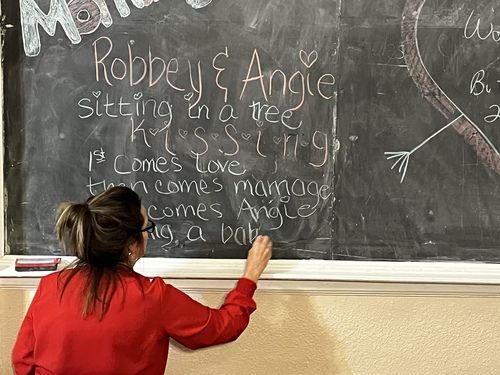 Robbey & Angie
sitting in a tree
k.i.s.s.i.n.g
1st Comes Love
then comes marriage
comes Angie
a bab
Wo
Bu